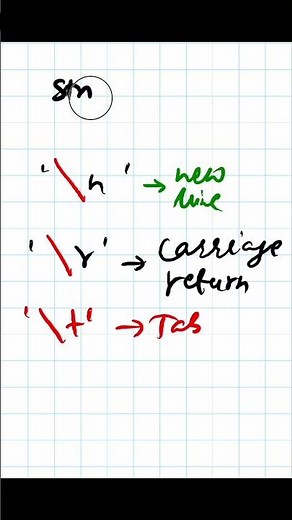 '\n' → new
line
'\r' → Carriage
return
'\t' → Tab